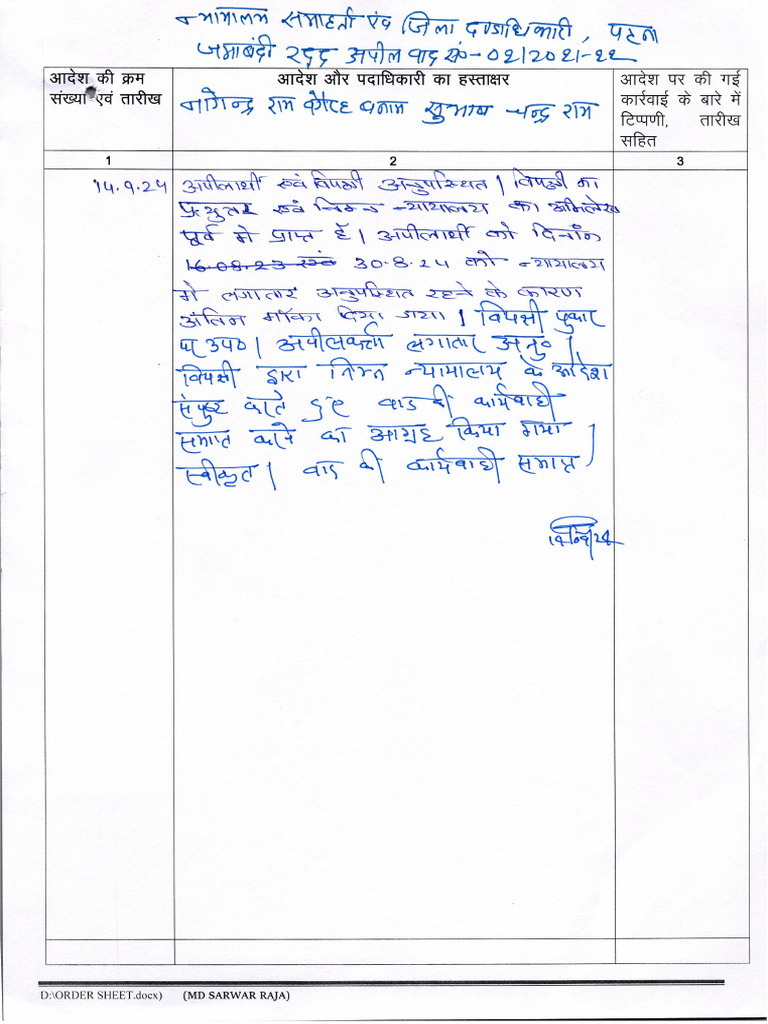 न्यायालय समाहर्ता एवं जिला दण्डाधिकारी, पटना
जमाबंदी रद्द अपील वाद सं०-02/2021-22
आदेश की क्रम
संख्या एवं तारीख
आदेश और पदाधिकारी का हस्ताक्षर
नागेन्द्र राम वगैरह बनाम सुभाष चन्द्र राम
आदेश पर की गई
कार्रवाई के बारे में
टिप्पणी, तारीख
सहित
1 2 3
14.9.24 अपीलार्थी एवं विपक्षी अनुपस्थित। विपक्षी का
प्रत्युत्तर एवं निम्न न्यायालय का अभिलेख
पूर्व में प्राप्त है। अपीलार्थी को दिनाँक
16.08.23 एवं 30.8.24 को न्यायालय
में लगातार अनुपस्थित रहने के कारण
अंतिम मौका दिया गया। विपक्षी पुकार
पर उप०। अपीलकर्त्ता लगातार अनु०।
विपक्षी द्वारा निम्न न्यायालय के आदेश
संपुष्ट करते हुए वाद की कार्यवाही
समाप्त करने का आग्रह किया गया।
स्वीकृत। वाद की कार्यवाही समाप्त।
D:\ORDER SHEET.docx) (MD SARWAR RAJA)